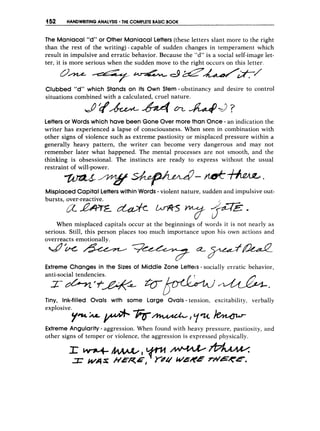 152 HANDWRITING ANALYSIS · THE COMPLETE BASIC BOOK
The Maniacal "d" or Other Maniacal Letters (these letters slant more to the right
than the rest of the writing) - capable of sudden changes in temperament which
result in impulsive and erratic behavior. Because the "d" is a social self-image let-
ter, it is more serious when the sudden move to the right occurs on this letter.
Clubbed "d" which Stands on its Own Stem - obstinancy and desire to control
situations combined with a calculated, cruel nature.
Letters or Words which have been Gone Over more than Once - an indication the
writer has experienced a lapse of consciousness. When seen in combination with
other signs of violence such as extreme pastiosity or misplaced pressure within a
generally heavy pattern, the writer can become very dangerous and may not
remember later what happened. The mental processes are not smooth, and the
thinking is obsessional. The instincts are ready to express without the usual
restraint of will-power.
was my shepherd - not there.
Misplaced Capital Letters within Words - violent nature, sudden and impulsive out-
bursts, over-reactive.
a LATE date wAS my fATE.
When misplaced capitals occur at the beginnings of words it is not nearly as
serious. Still, this person places too much importance upon his own actions and
overreacts emotionally.
I've Been Feeling a great Deal
Extreme Changes in the Sizes of Middle Zone Letters - socially erratic behavior,
anti-social tendencies.
I don't like to follow rules.
Tiny, Ink-filled Ovals with some Large Ovals - tension, excitability, verbally
explosive.
you know
Extreme Angularity - aggression. When found with heavy pressure, pastiosity, and
other signs of temper or violence, the aggression is expressed physically.
I was here, you were there.
I WAS HERE, YOU WERE THERE.